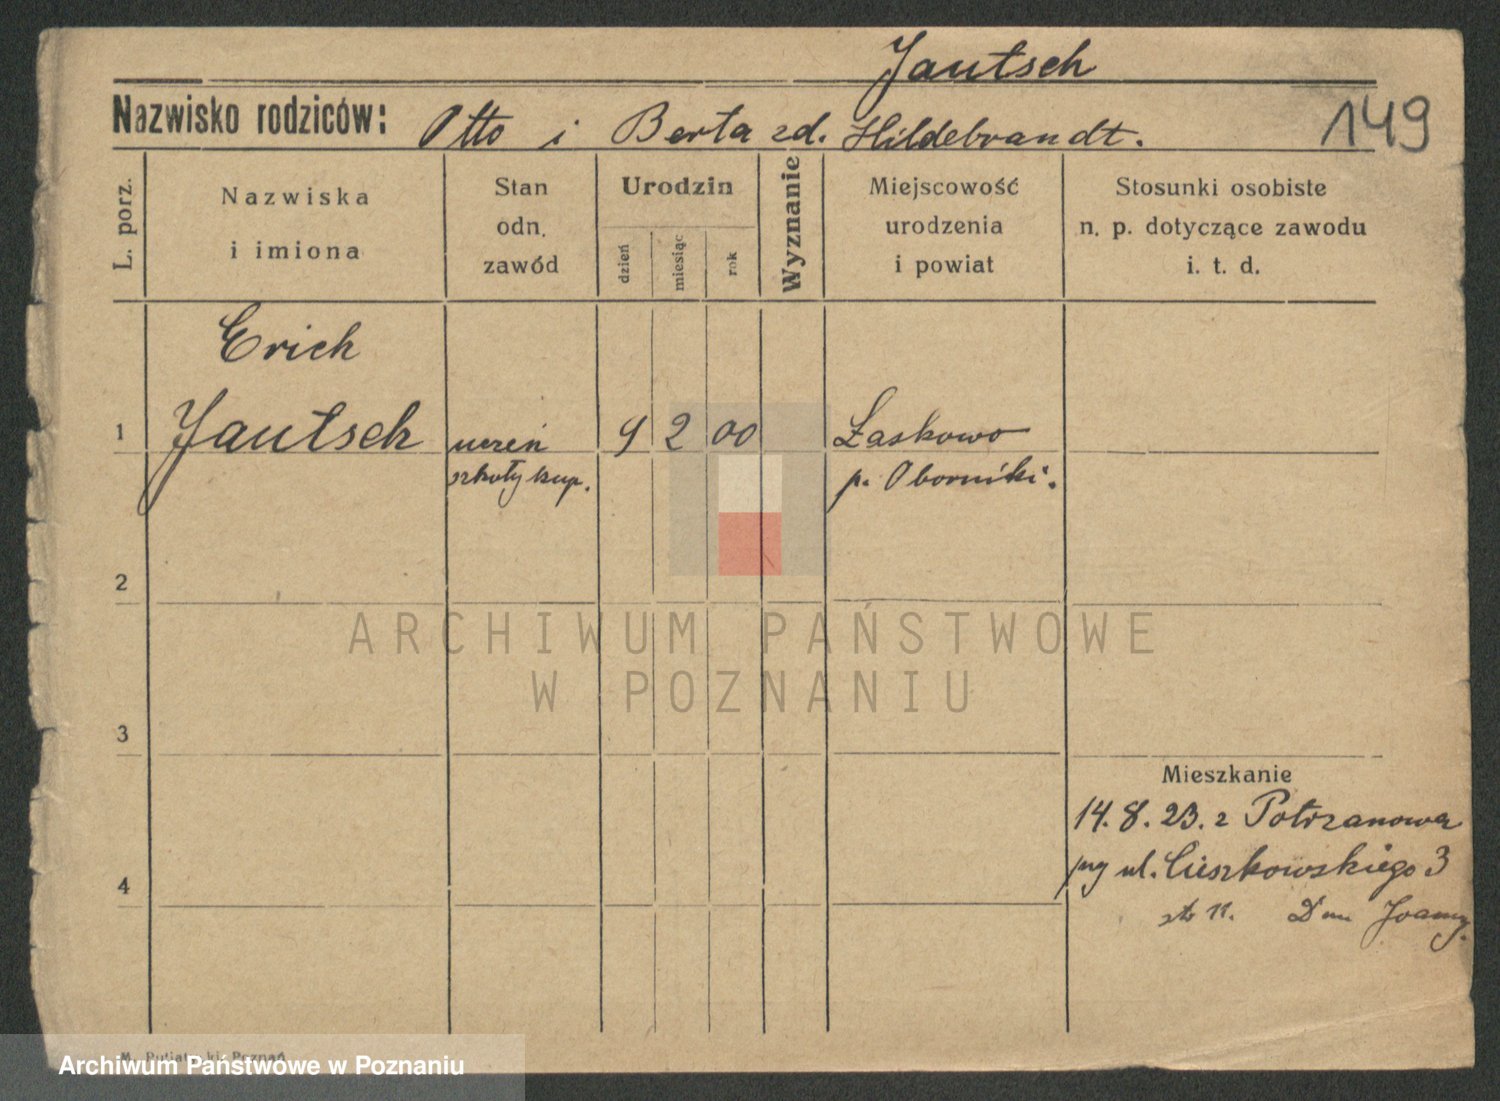 Jautsch
Nazwisko rodziców: Otto i Berta zd. Hildebrandt.
149
L. porz.
Nazwiska
i imiona
Stan
odn.
zawód
Urodzin
dzień
miesiąc
rok
Wyznanie
Miejscowość
urodzenia
i powiat
Stosunki osobiste
n. p. dotyczące zawodu
i. t. d.
Erich
1 Jautsch uczeń 9 2 00 Łaskowo
szkoły kup. p. Oborniki.
2
ARCHIWUM PAŃSTWOWE
W POZNANIU
3
Mieszkanie
14. 8. 23. z Potrzanowa
ul. Cieszkowskiego 3
4
11.
Poznań
Archiwum Państwowe w Poznaniu